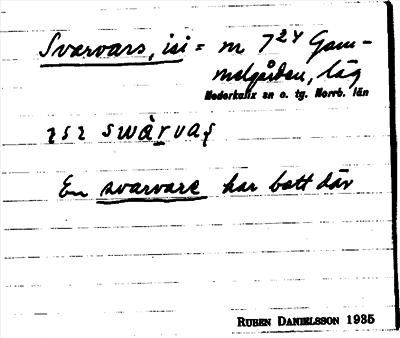 Svarvars, isi = m 7²⁴ Gam-
melgården, läg
Nederkalix sn o. tg. Norrb. län
En svarvare har bott där
RUBEN DANIELSSON 1935